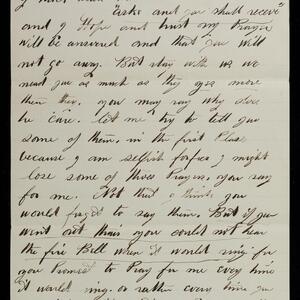 Eske and you shall receve"
and I Hope and trust my Prayer
will be answered and that you will
not go away. But stay with us we
need you as much as they yess more
then they. you may ask why does
he care. let me try to tell you
some of them. in the first Place
because I am selfish for I might
lose some of thoes Prayers you say
for me. Not that I think you
would forget to say them. But if you
went out their you could not hear
the fire Bell when it would ring for
you Promised to Pray for me every time
it would ring. or rather every time you